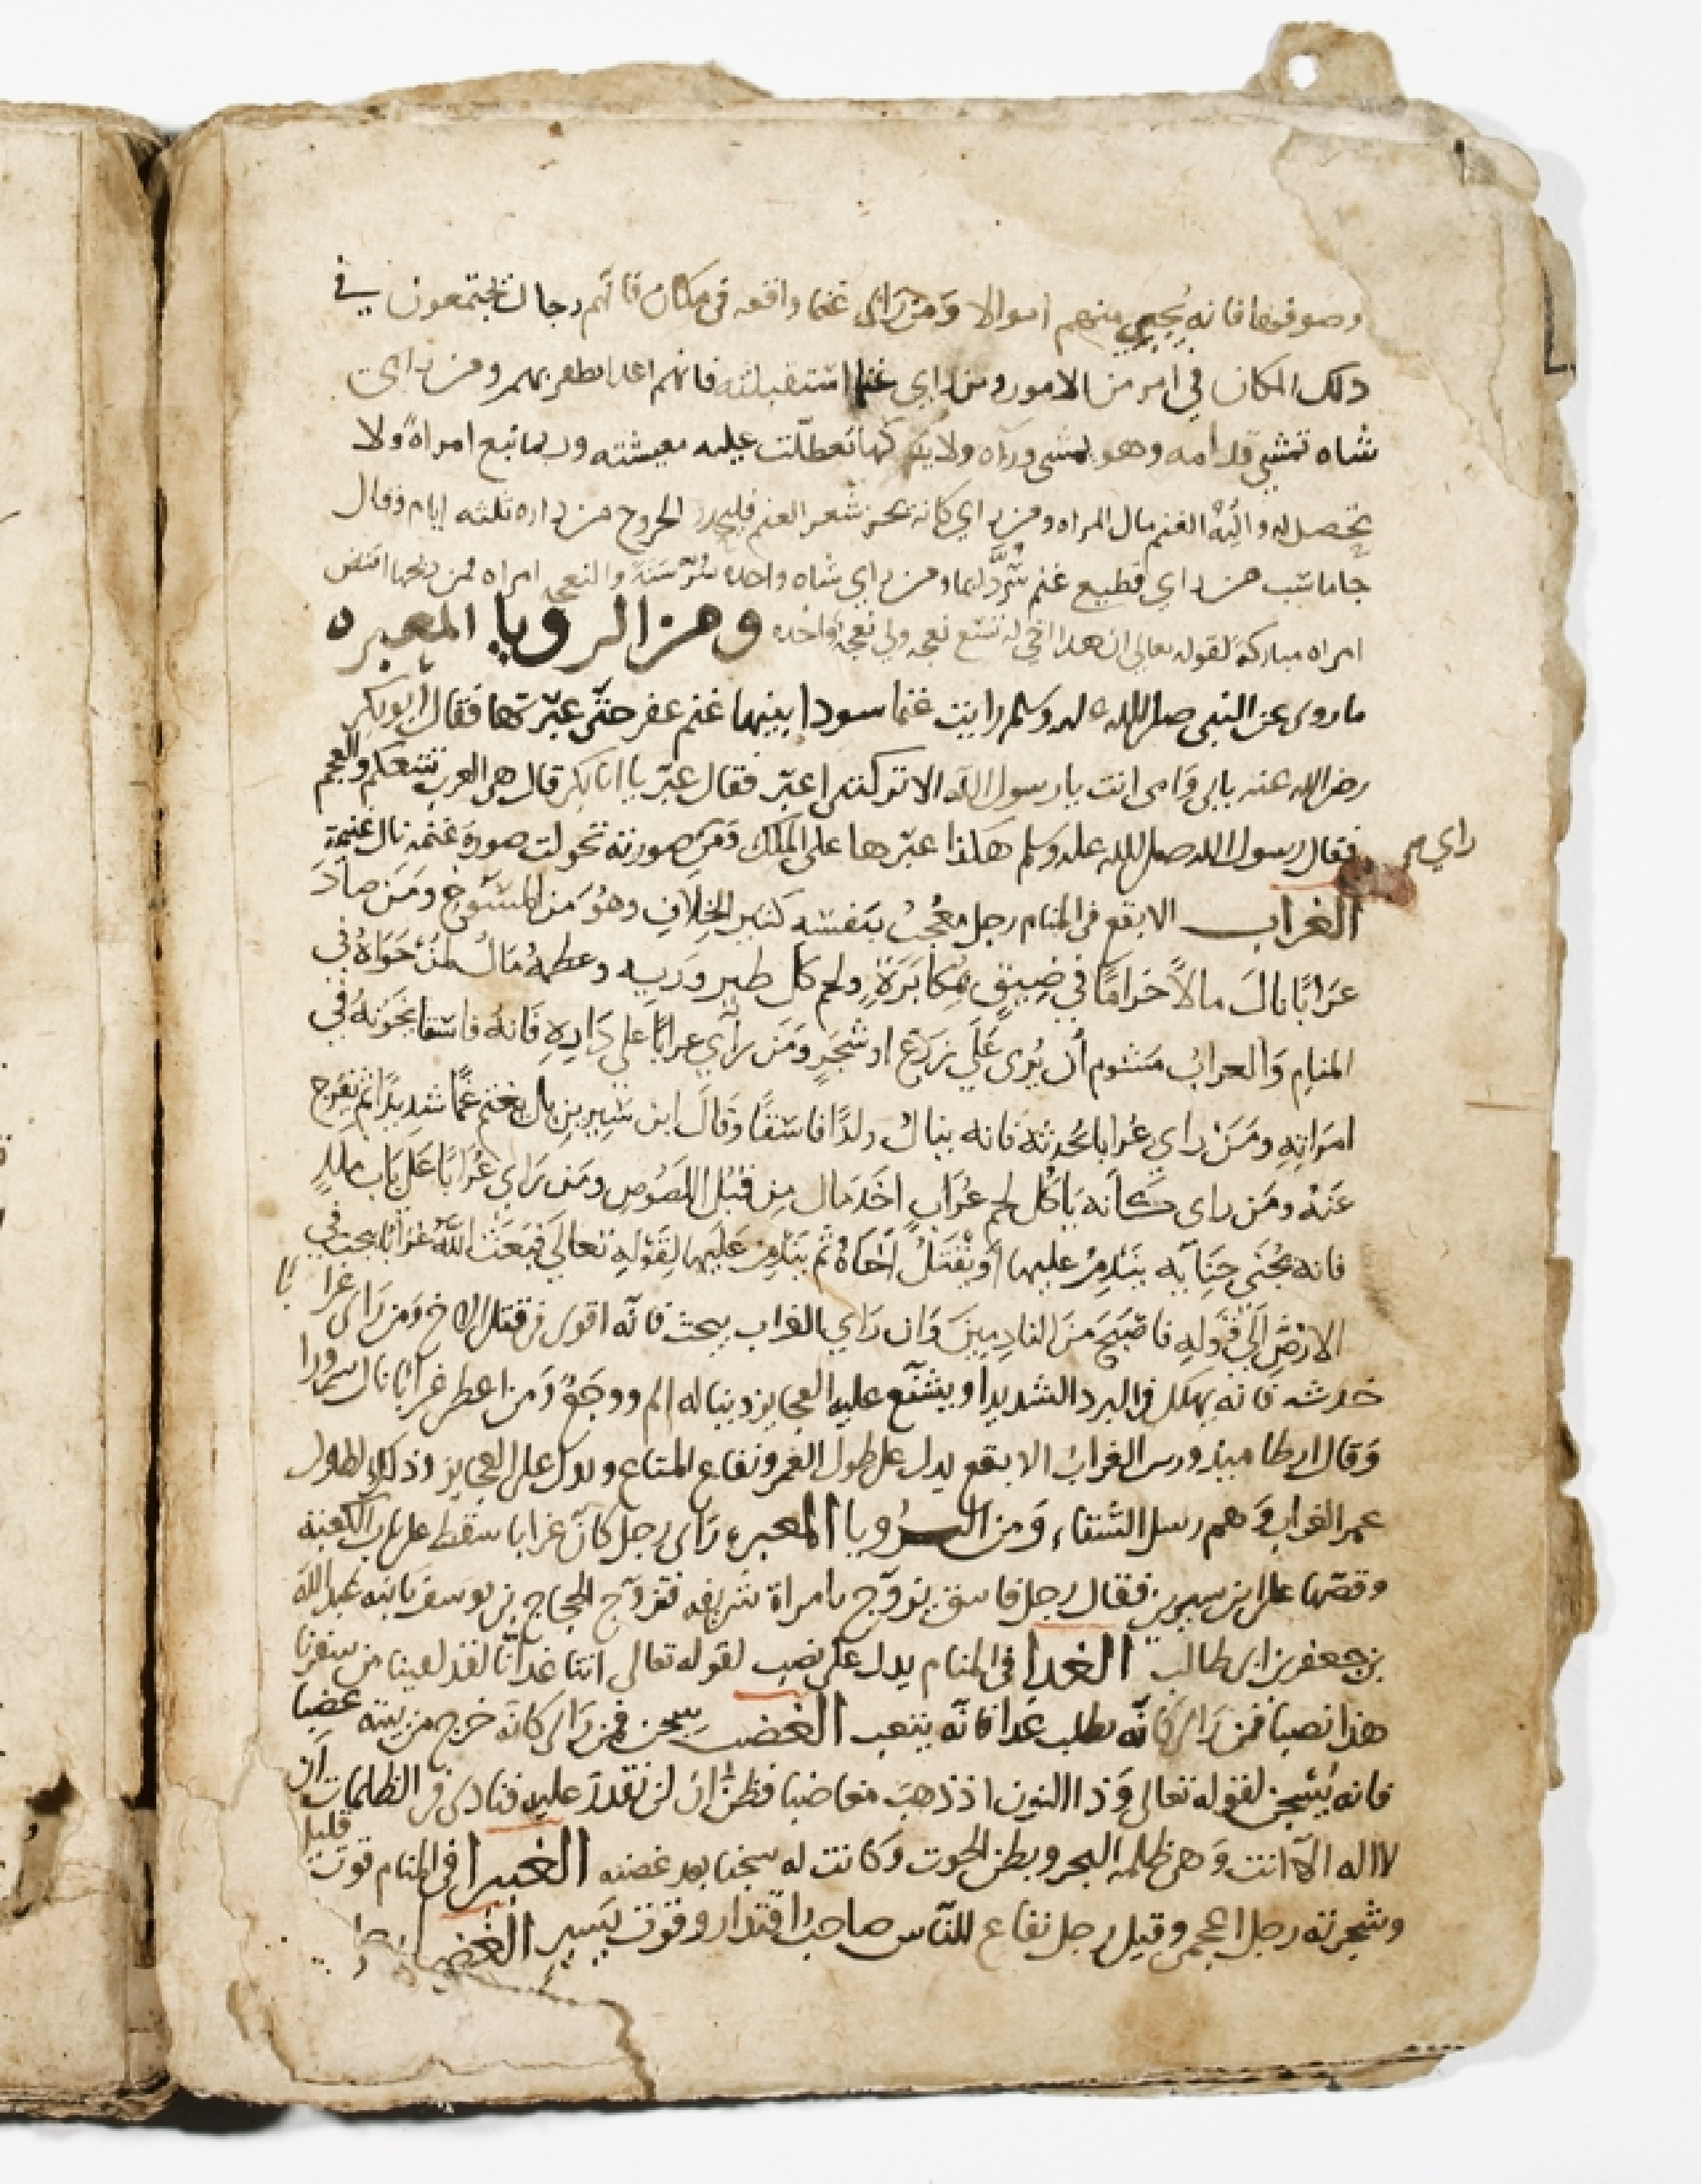 وصوفها فانه يجبي منهم اموالا ومن راي غنما واقفه في مكان فانهم رجال يجتمعون في
ذلك المكان في امر من الامور ومن راي غنما استقبلته فانهم اعدا يظفر بهم ومن راي
شاه تمشي قدامه وهو يمشي وراه ولا يدركها تعطلت عليه معيشته وربما تبع امراة ولا
تحصل له والية الغنم مال المراه ومن راي كانه يجز شعر الغنم فليحذر الخروج من داره ثلثه ايام وقال
جاماسب من راي قطيع غنم سُرّ دايما ومن راي شاه واحده سُرّ سَنَة والنعجه امراه فمن ذبحها افتض
امراه مباركة لقوله تعالي ان هذا اخي له تسع نعجه ولي نعجة واحده ومن الرويا المعبره
ماروى عن النبي صلى الله عليه وسلم رايت غنما سودا بينها غنم عفر حتّى عبّرتها فقال ابو بكر
رضى الله عنه بابى وَامى انت يا رسول اللّه الا تركتنى اعبّر فقال عبّر يا ابا بكر قال هى العرب تتبعكم والعجم
فقال رسول الله صلى الله عليه وسلم هكذا عبّرها علىّ الملَك وَمَن صورته تحولت صورة غنمه نال غنيمة
راي م
الغراب الابقع فى المنام رجل مُعجبٌ بنفسه كثير الخِلافِ وهوُ مَن المسوخ ومَن صادَ
غرابًا نالَ مالاً حَرامًا في ضِيقٍ مكابَرَةٍ ولحم كل طير وريشه وعظمهُ مالٌ لمَنْ حَوَاهُ في
المنامِ وَالغرابُ مَشئوم أن يُرى عَلَي زرَعٍ او شجَرٍ ومَن رأي غرابًا على دَارِهِ فَانهُ فاسقا يخونهُ في
امرَاتِهِ ومَنْ راي غرابا يحُدثه فانه ينالُ ولدًا فاسقًا وَقالَ ابن سِيرين بل يغتم غمًّا شديدًا ثم يفرج
عَنهُ ومَن راى كأنه ياكُل لحم غُرَابٍ اخَذ مال مِن قبَلِ اللصُوصِ ومَن رَاي غُرَابًا عَلي باب ملكٍ
فانه يُجنَى جِنَايه يَندمُ عليها أو يقتلُ أخَاهُ ثم يندم عَليها لِقَولهِ تعالَي فبَعَثَ اللّه غرابًا يبحث في
الارْضِ الَي قَولهِ فاصبَحَ مَن النادِمِينَ وَان رَاي الغراب يبحث فانّه اقوى فى قتل الاخ وَمن رَاى غرابًا
خدشه فانه يهلك فى البرد الشديد او يشنّع عليه العجايز وينا له الم ووجَعٌ وَمن اعطى غرابًا نال سرورا
وَقال ارطاميدورس الغراب الابقع يدل على طول العمر ونفاع المتاع ويدل على العجايز وذلك لطول
عمر الغراب وَهم رسل الشتاء وَمن الرُويا المعبره رَاى رجل كانّ غرابا سقط على باب الكعبَة
وقصّها على ابن سيرين فقال رجل فاسق يزوّج بامراة شريفه فتزوّج الحجاج بن يوسف بابنه عبد اللّه
بن جعفر بن ابى طالب الغدا فى المنام يدل على نصب لقوله تعالى اتنا غداَنا لقد لقينا من سفرنا
هذا نصبا فمن رَاى كانّه يطلب غدا فانّه يتعب الغضب سجن فمن رَاى كانّه خرج من بيته غضبا
فانه يُسجن لقوله تعالى وَذا النون اذ ذهبَ مغاضبا فظن ان لن نقدرَ عليه فنادى فى الظلمات اَن
لا اله الّا انت وَهى ظلمه البحر وبطن الحوت وكانت له سجنا بعد غضبه الغبيرا فى المنام قوت قليل
وشجرته رجل اعجمى وقيل رجل نفاع للنّاس صاحب اقتدار وقوت يَسير الغضا